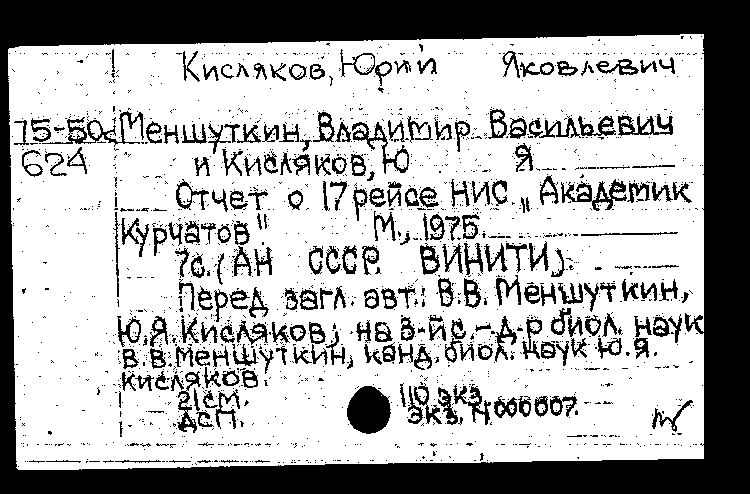 Кисляков, Юрий Яковлевич
75-50с Меншуткин, Владимир Васильевич
624 и Кисляков, Ю Я
Отчет о 17 рейсе НИС „Академик
Курчатов" М., 1975.
7с. (АН СССР. ВИНИТИ).
Перед загл. авт.: В.В. Меншуткин,
Ю.Я. Кисляков; на 3-й с. - д-р биол. наук
В.В. Меншуткин, канд. биол. наук Ю.Я.
Кисляков.
21см. 110 экз.
ДСП. Экз. N 000007.